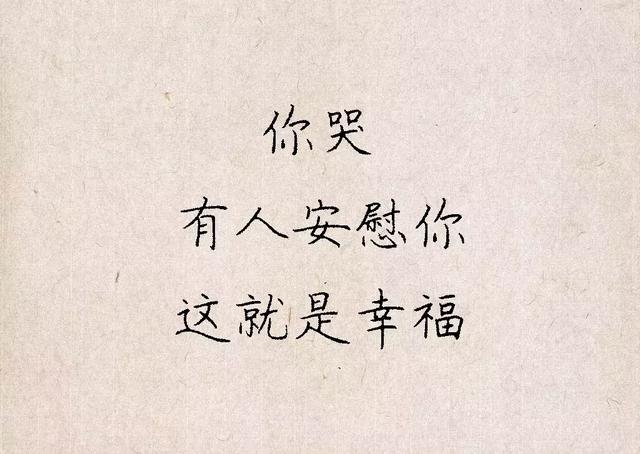 你哭
有人安慰你
这就是幸福